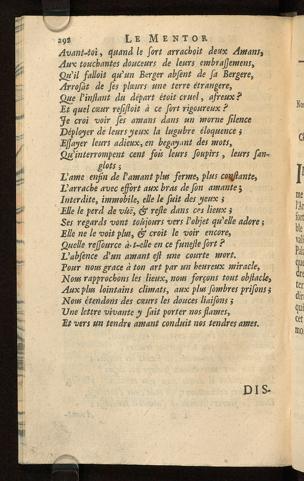 292 LE MENTOR
Avant-toi, quand le sort arrachoit deux Amans,
Aux touchantes douceurs de leurs embrassemens,
Qu'il falloit qu'un Berger absent de sa Bergere,
Arrosât de ses pleurs une terre étrangere,
Que l'instant du départ étoit cruel, afreux?
Et quel cœur resistoit à ce sort rigoureux?
Je croi voir ses amans dans un morne silence
Déployer de leurs yeux la lugubre éloquence;
Essayer leurs adieux, en begayant des mots,
Qu'interrompent cent fois leurs soupirs, leurs san-
glots;
L'ame enfin de l'amant plus ferme, plus constante,
L'arrache avec effort aux bras de son amante;
Interdite, immobile, elle le suit des yeux;
Elle le perd de vûë, & reste dans ces lieux;
Ses regards vont toûjours vers l'objet qu'elle adore;
Elle ne le voit plus, & croit le voir encore,
Quelle ressource a-t-elle en ce funeste sort?
L'absence d'un amant est une courte mort.
Pour nous grace à ton art par un heureux miracle,
Nous rapprochons les lieux, nous forçons tout obstacle,
Aux plus lointains climats, aux plus sombres prisons;
Nous étendons des cœurs les douces liaisons;
Une lettre vivante y sait porter nos flames,
Et vers un tendre amant conduit nos tendres ames.
DIS-